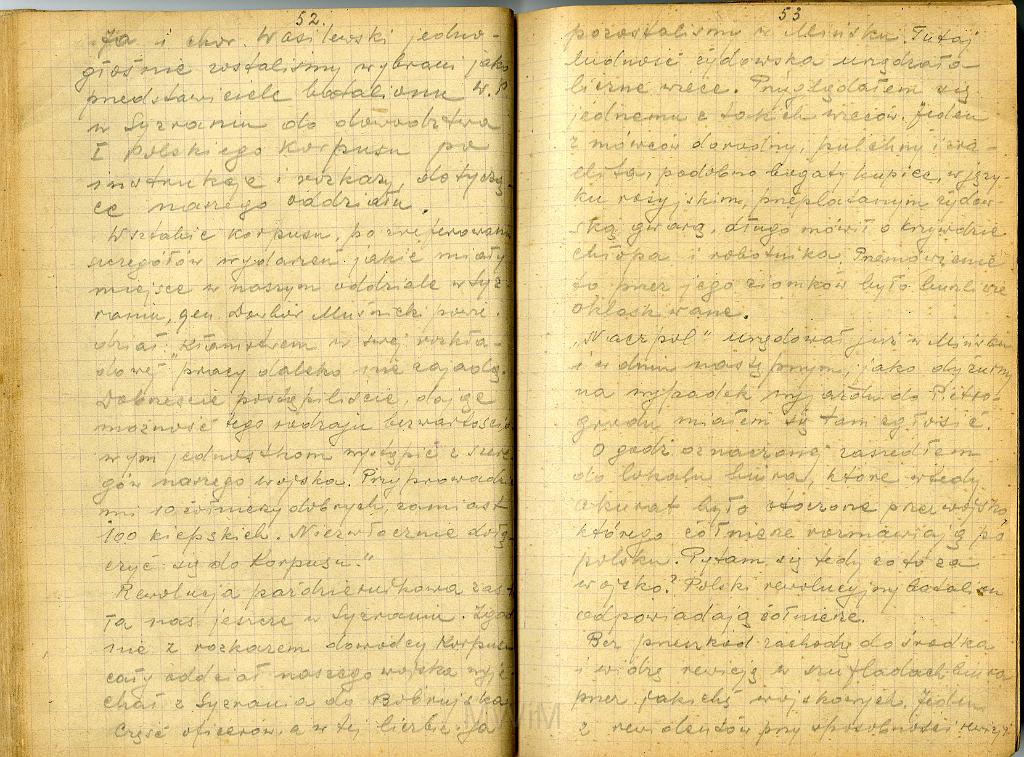 52.
Ja i chor. Wasilewski jedno-
głośnie zostaliśmy wybrani jako
przedstawiciele batalionu W.P.
w Syzraniu do dowództwa
I Polskiego Korpusu po
instrukcje i rozkazy, dotyczą-
ce naszego oddziału.
W sztabie Korpusu, po zreferowaniu
szczegółów wydarzeń jakie miały
miejsce w naszym oddziale w Syz-
raniu, gen. Dowbór Muśnicki powie-
dział: "Kłamstwem w swej rozkła-
dowej pracy daleko nie zajadą.
Dobrzeście postąpiliście, dając
możność tego rodzaju bezwartościo-
wym jednostkom wystąpić z szere-
gów naszego wojska. Przyprowadź
mi 10 żołnierzy dobrych, zamiast
100 kiepskich. Niezwłocznie dołą-
czyć się do Korpusu."
Rewolucja październikowa zas-
ta nas jeszcze w Syzraniu. Zgod-
nie z rozkazem dowódcy Korpusu
cały oddział naszego wojska wyje-
chał z Syzrania do Bobrujska.
Część oficerów, a w tej liczbie i ja
53
pozostaliśmy w Mińsku. Tutaj
ludność żydowska urządzała
liczne wiece. Przyglądałem się
jednemu z takich wieców. Jeden
z mówców dorodny, pulchny izra-
elita, podobno bogaty kupiec, w języ-
ku rosyjskim, przeplatanym żydow-
ską gwarą, długo mówił o krzywdzie
chłopa i robotnika. Przemówienie
to przez jego ziomków było burzliwie
oklaskiwane.
"Naczpol" urzędował już w Mińsku
i w dniu następnym, jako dyżurny
na wypadek wyjazdu do Pietro-
gradu miałem się tam zgłosić.
O godz. oznaczonej zaszedłem
do lokalu biura, które wtedy
akurat było otoczone przez wojsko,
którego żołnierze rozmawiają po
polsku. Pytam się tedy co to za
wojsko? Polski rewolucyjny batalion
odpowiadają żołnierze.
Bez przeszkód zachodzę do środka
i widzę rewizję w szufladach biurka
przez jakichś wojskowych. Jeden
z rewidentów przy sposobności
MWiM